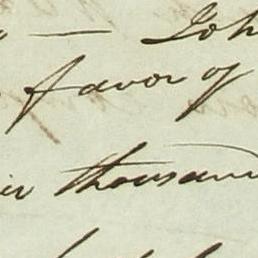 — Joh
favor of
thousand